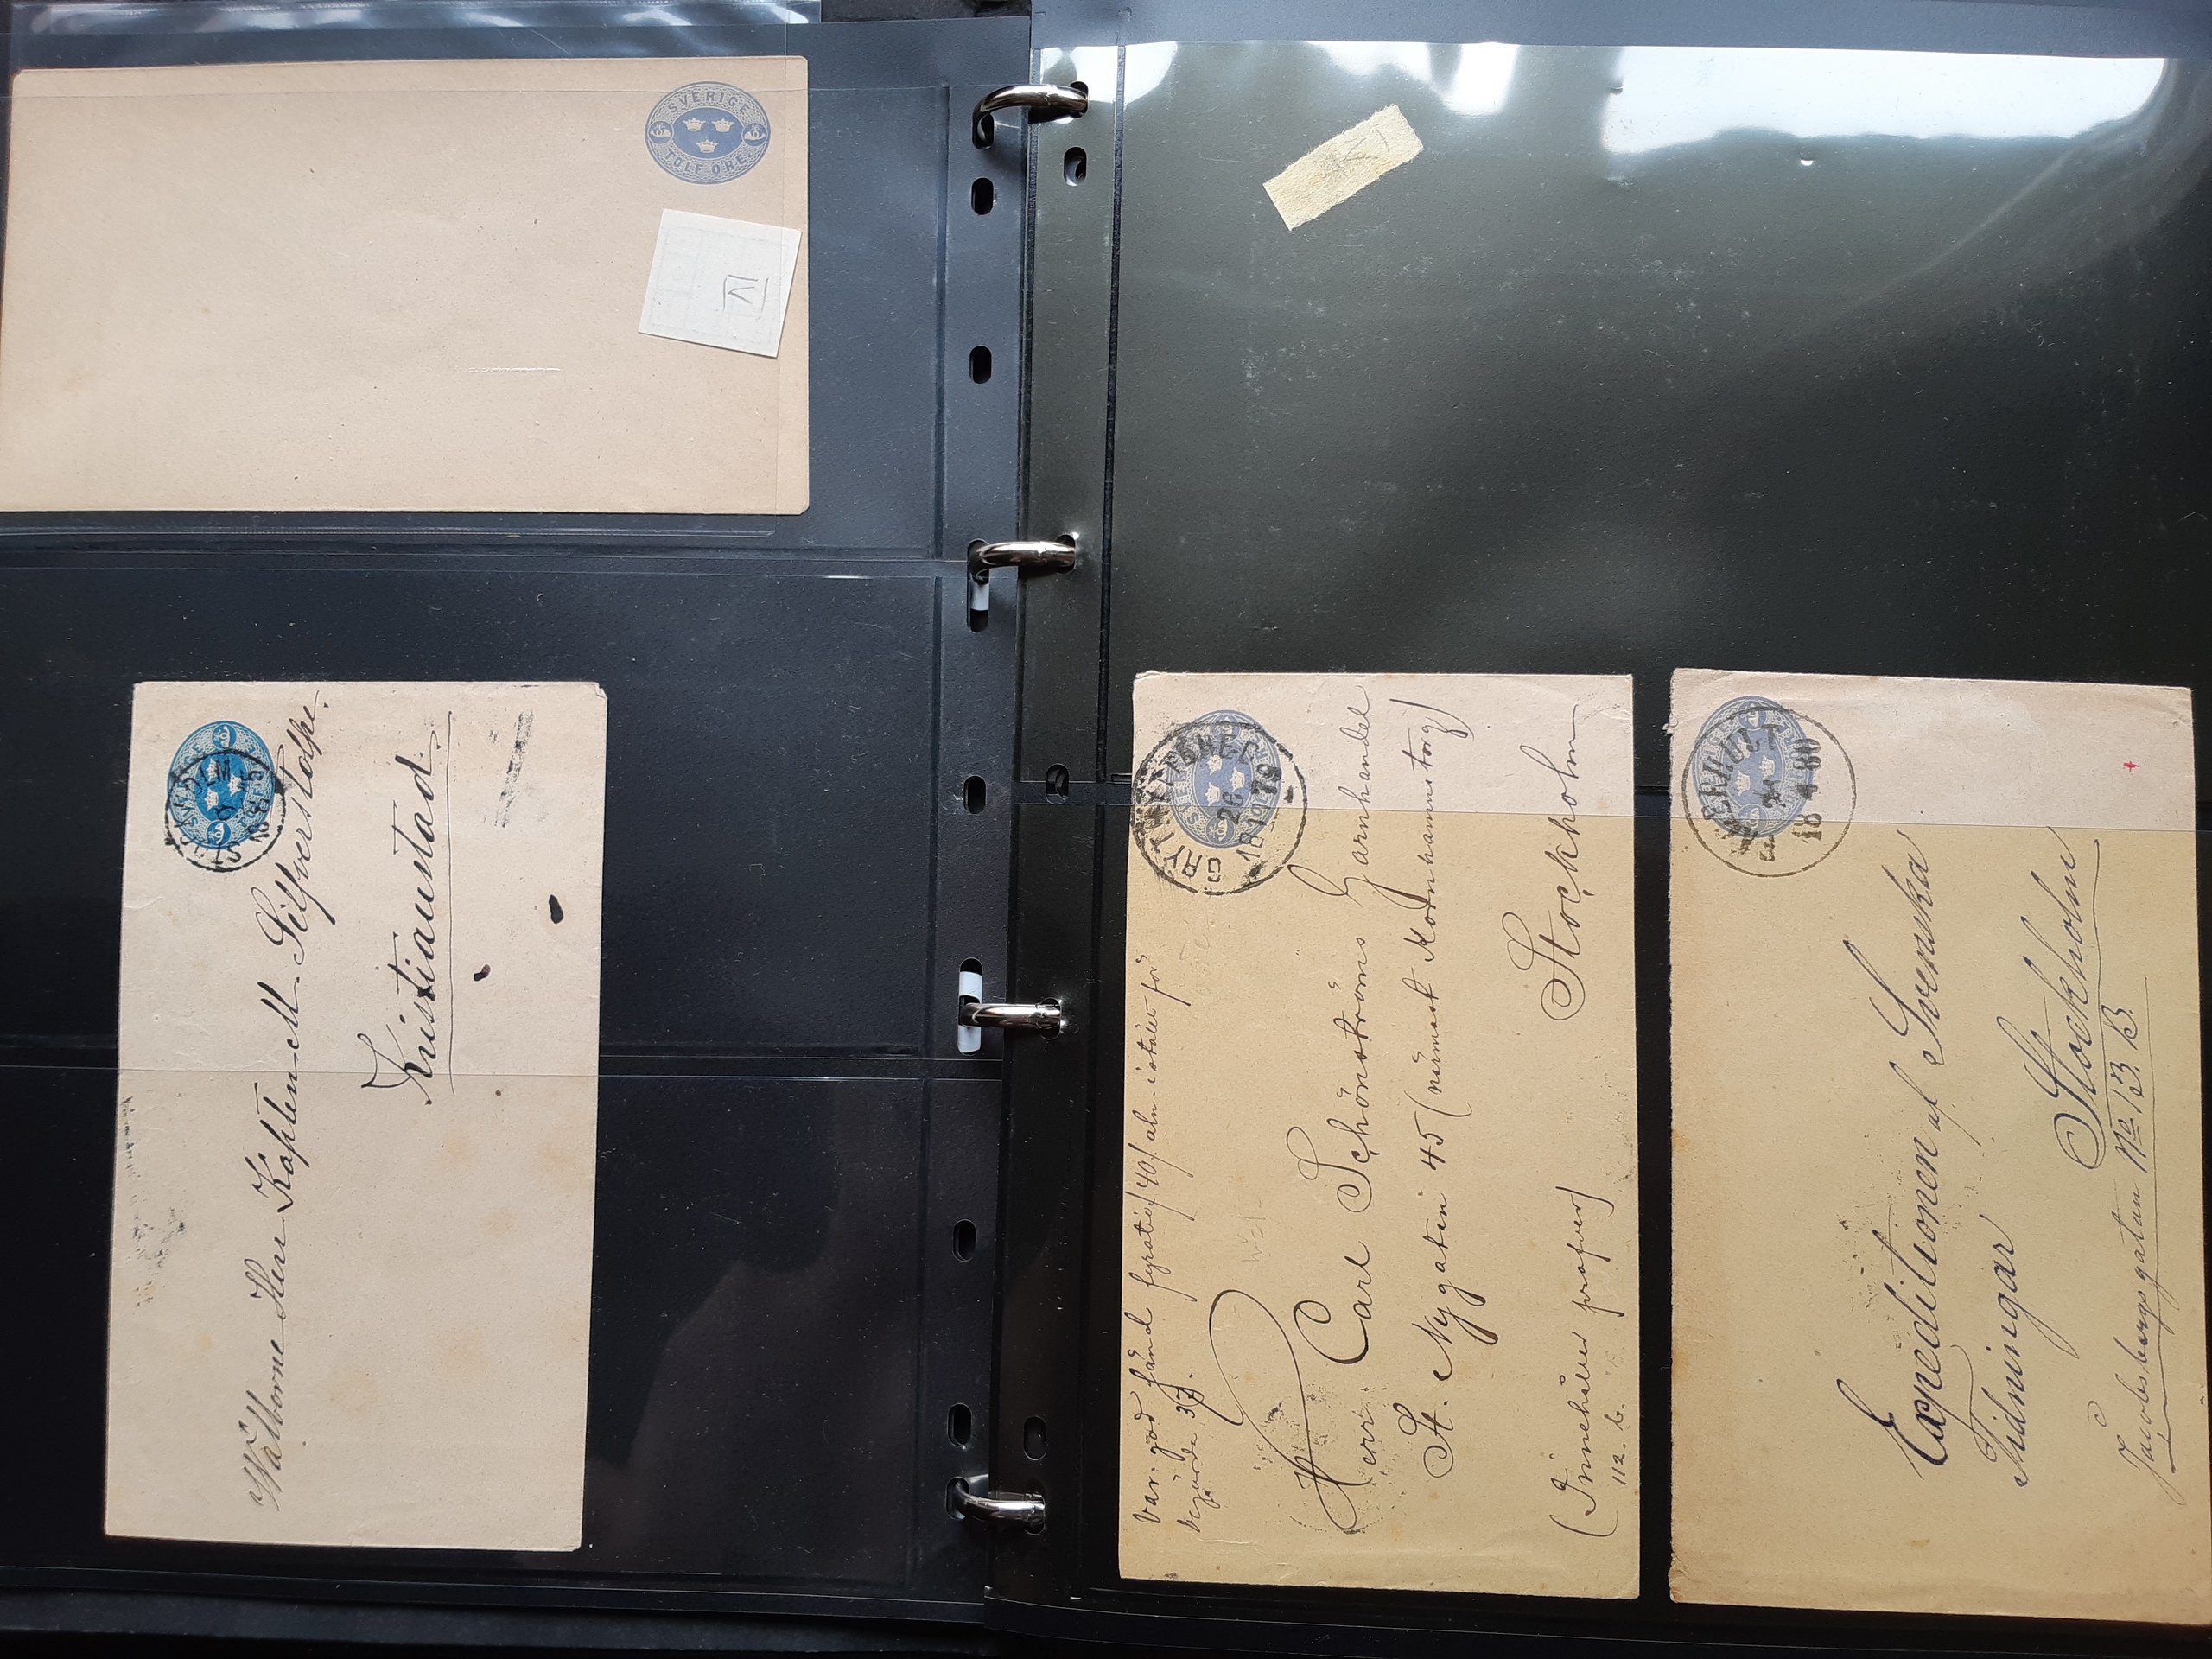 SVERIGE
TOLF ÖRE.
VI
Välborne Herr Kapten M. Silfverstolpe.
Kristianstad.
Var. god sänd fyratio/40/ aln. i stället för
begärde 37.
GRYTHYTTEHED
26
1879
Herr Carl Schönströms Garnhandel
St. Nygatan 45 (närmast Kornhamnstorg)
Stockholm
(Innehåller profver)
112. b.
18 80
Expeditionen af Svenska
Tidningar
Stockholm
Jacobsbergsgatan No 13 B.